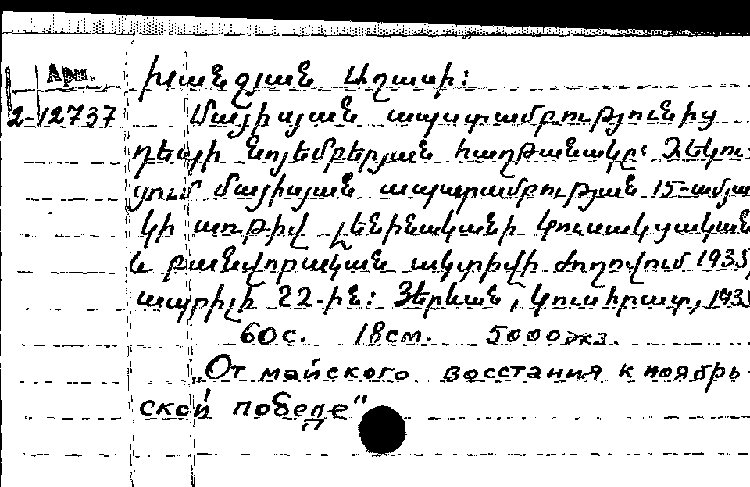 Арм.
Խանջյան Աղասի:
2-12737 Մայիսյան ապստամբությունից
դեպի նոյեմբերյան հաղթանակը: Զեկու-
ցում մայիսյան ապստամբության 15-ամյա
կի առթիվ Լենինականի կուսակցական
և բանվորական ակտիվի ժողովում 1935,
ապրիլի 22-ին: Յերևան, Կուսհրատ, 1935
60с. 18см. 5000экз.
„От майского восстания к ноябрь-
ской победе"